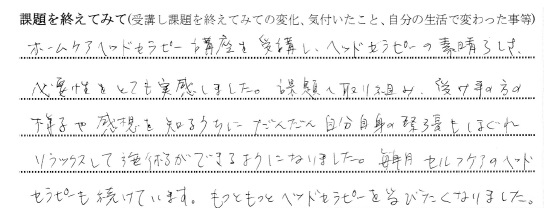 課題を終えてみて(受講し課題を終えてみての変化、気付いたこと、自分の生活で変わった事等)
ホームケアヘッドセラピー講座を受講し、ヘッドセラピーの素晴らしさ、
必要性をとても実感しました。課題に取り組み、受け手の方の
様子や感想を知るうちにだんだん自分自身の緊張もほぐれ
リラックスして施術ができるようになりました。毎月セルフケアのヘッド
セラピーも続けています。もっともっとヘッドセラピーを学びたくなりました。